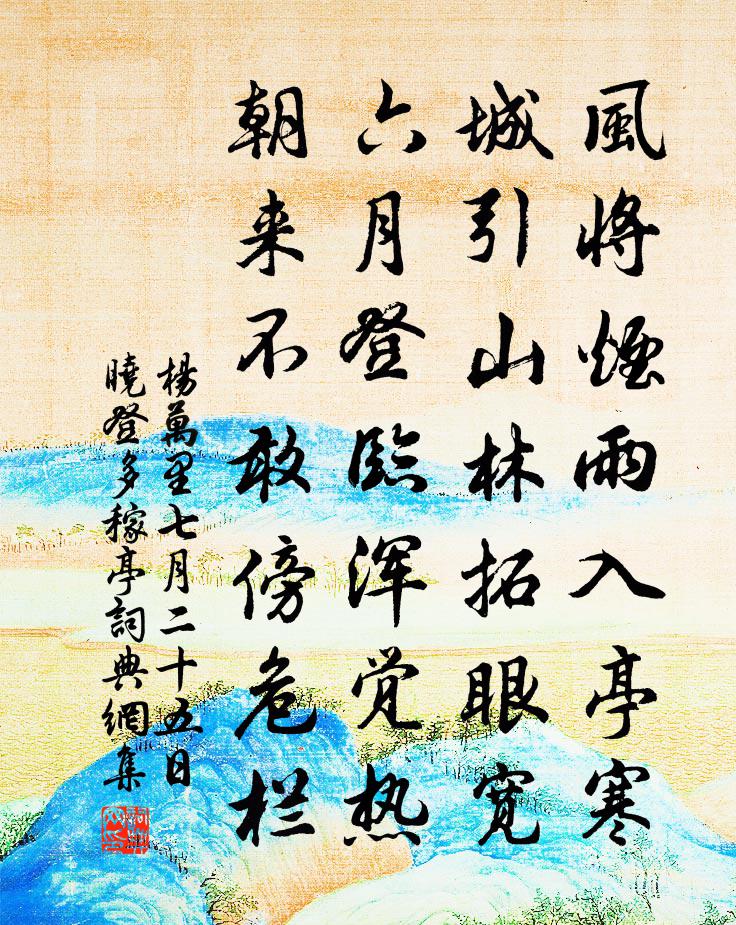 風將煙雨入亭寒
城引山林拓眼寬
六月登臨渾觉热
朝来不敢傍危栏
楊萬里七月二十五日
曉登多稼亭詞典網集